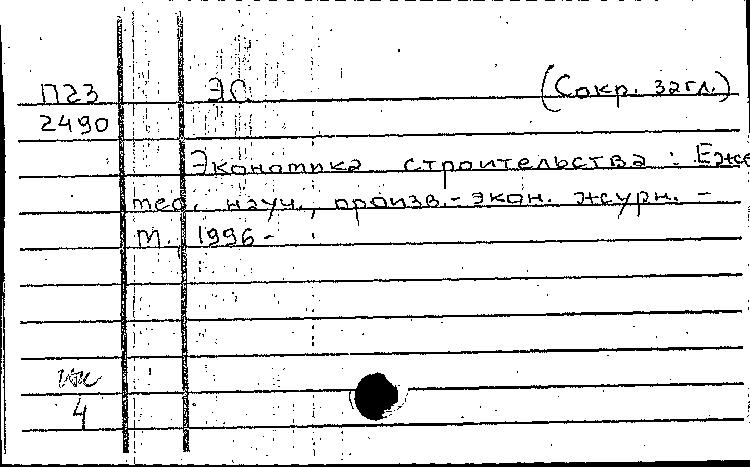 П23 ЭС (Сокр. загл.)
2490
Экономика строительства : Еже
мес. науч., произв.-экон. журн. -
М., 1996-
4